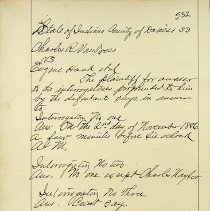 552
State of Indiana County of Daviess SS
Charles R Van Trees
vs
Eugene Hand et al
The plaintiff for answer
to the interrogatories propounded to him
by the defendant says in answer
to
Interrogatory No one
Ans. On the 2nd day of November 1886
a few minutes before six oclock
A M.
Interrogatory No two
Ans. No one except Charles
Interrogatory No Three
Ans. Cant say.